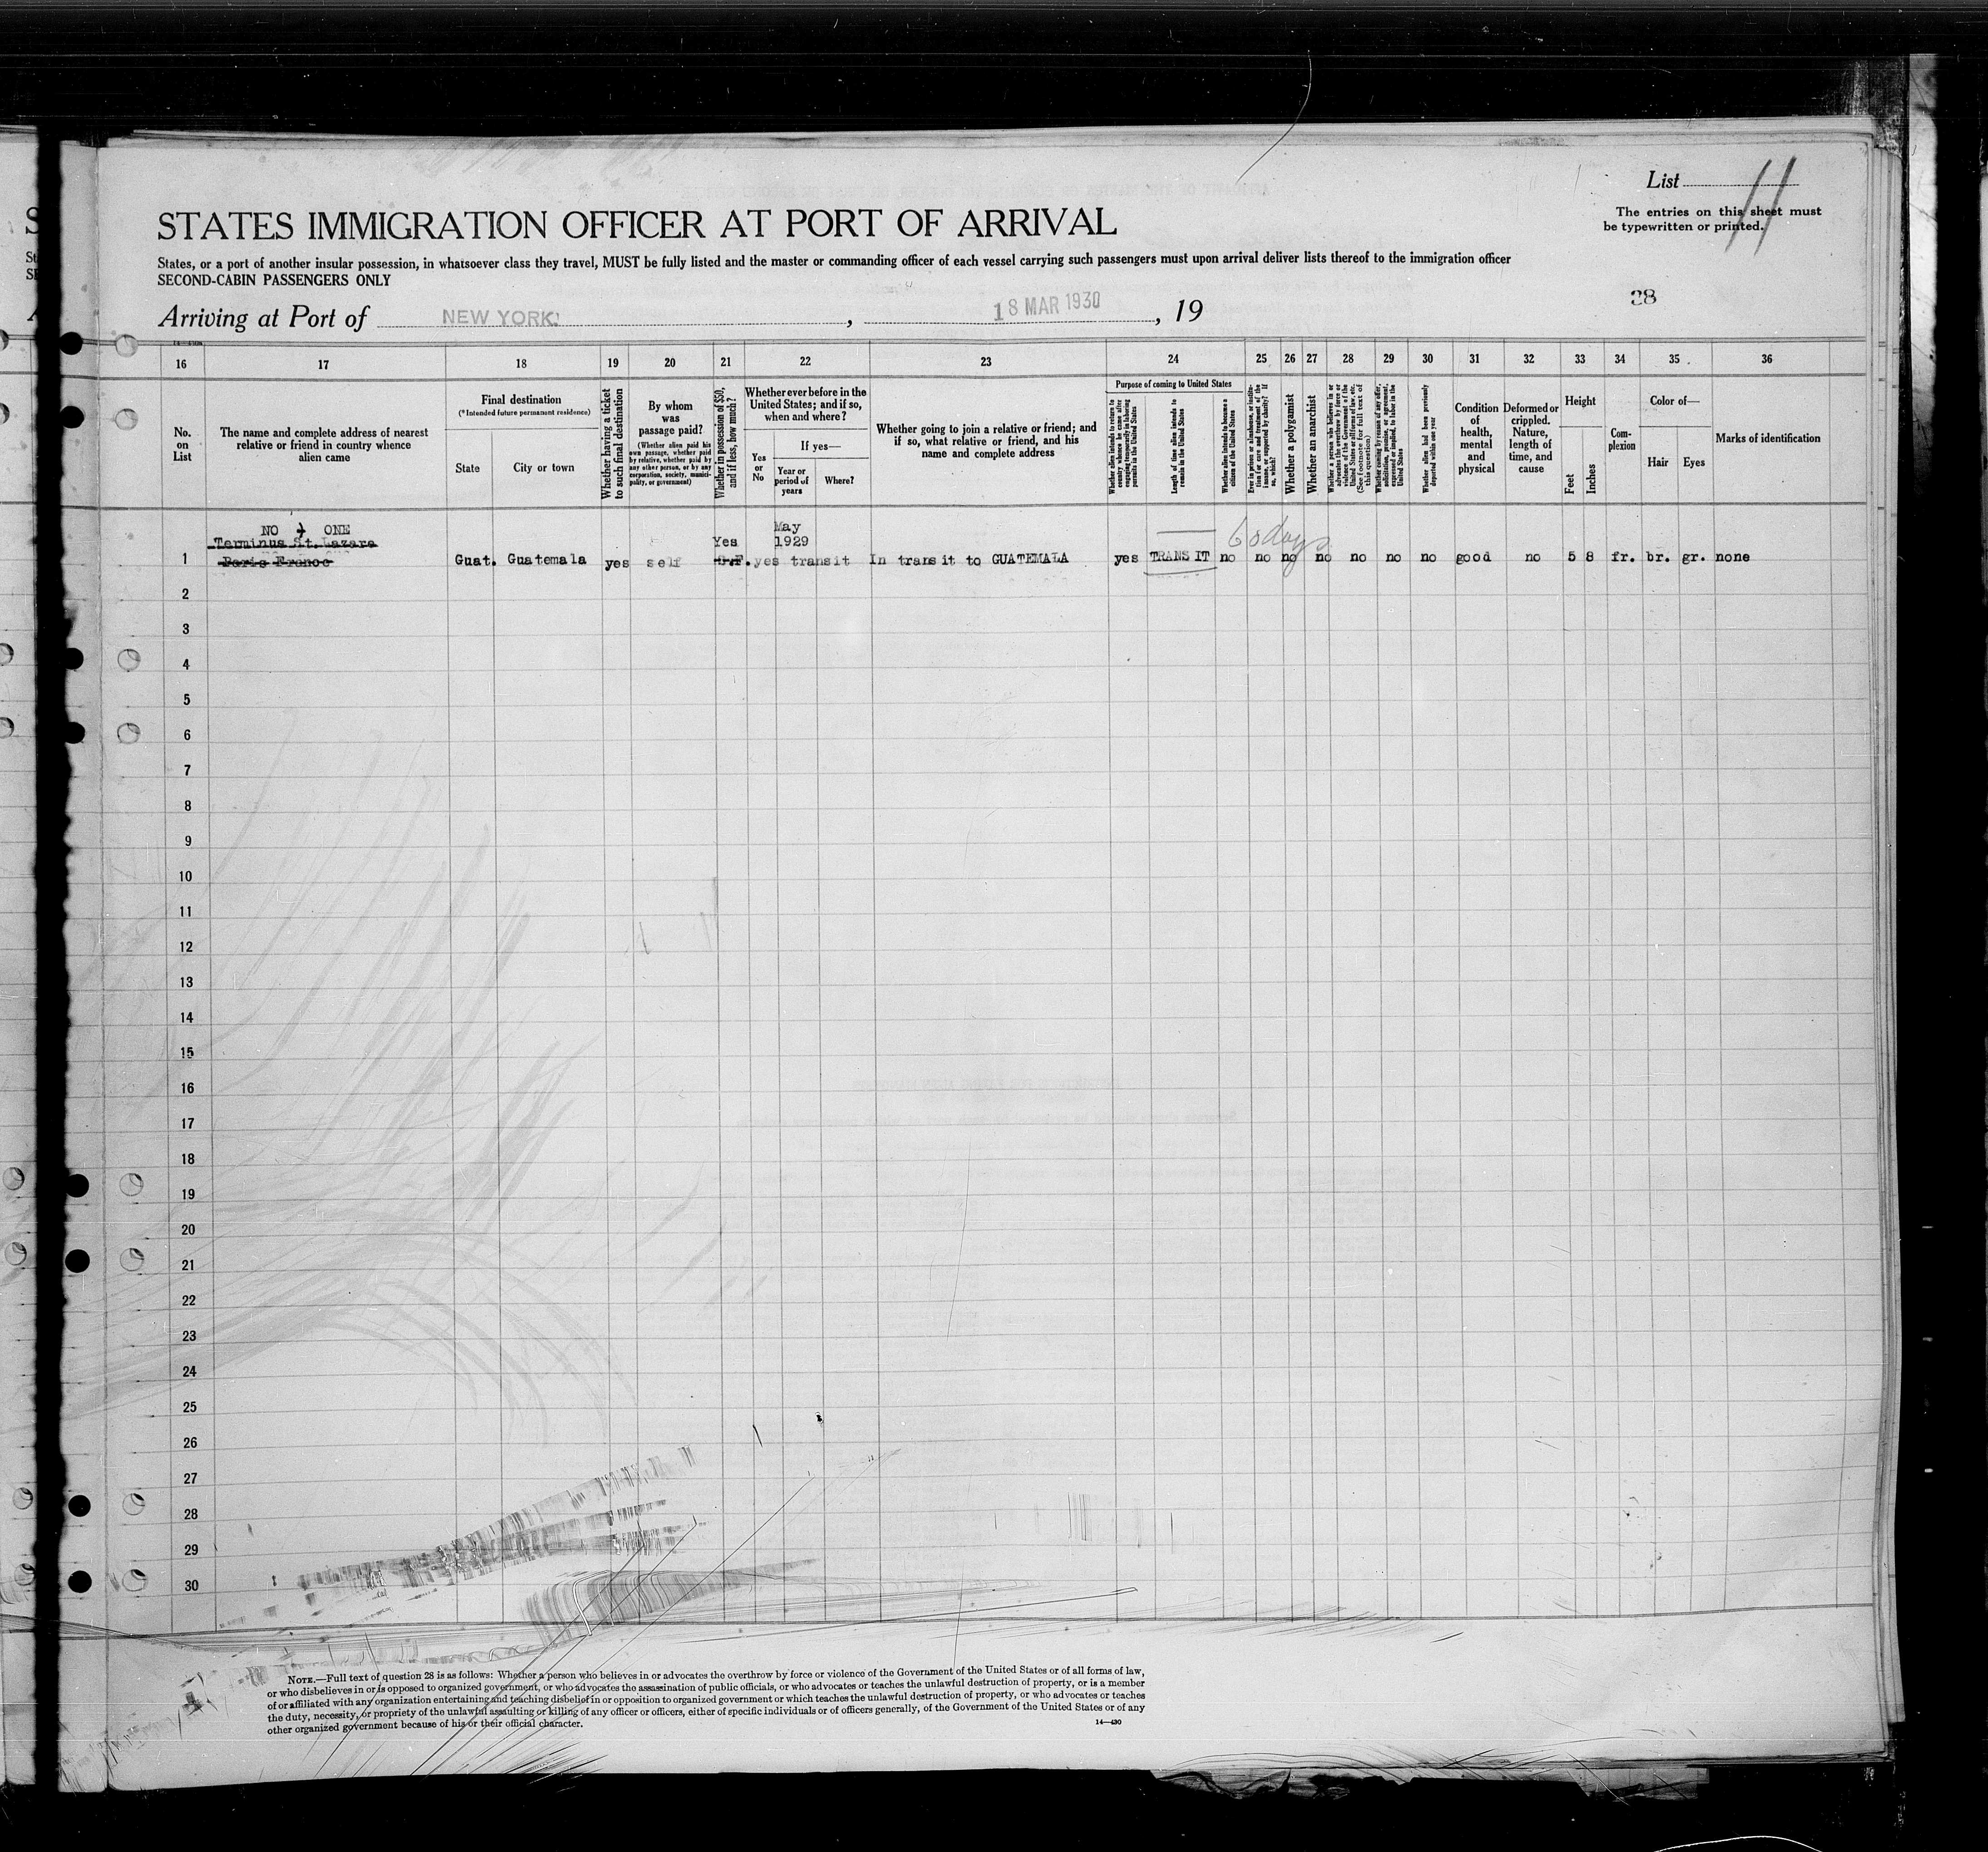 List 11
The entries on this sheet must
be typewritten or printed.
STATES IMMIGRATION OFFICER AT PORT OF ARRIVAL
States, or a port of another insular possession, in whatsoever class they travel, MUST be fully listed and the master or commanding officer of each vessel carrying such passengers must upon arrival deliver lists thereof to the immigration officer
SECOND-CABIN PASSENGERS ONLY
38
Arriving at Port of NEW YORK, 18 MAR 1930, 19
16 17 18 19 20 21 22 23 24 25 26 27 28 29 30 31 32 33 34 35 36
No.
on
List
The name and complete address of nearest
relative or friend in country whence
alien came
Final destination
(* Intended future permanent residence)
State
City or town
Whether having a ticket
to such final destination
By whom
was
passage paid?
(Whether alien paid his
own passage, whether paid
by relative, whether paid by
any other person, or by any
corporation, society, munici-
pality, or government)
Whether in possession of $50,
and if less, how much?
Whether ever before in the
United States; and if so,
when and where?
Yes
or
No
If yes—
Year or
period of
years
Where?
Whether going to join a relative or friend; and
if so, what relative or friend, and his
name and complete address
Purpose of coming to United States
Whether alien intends to return to
country whence he came after
engaging temporarily in laboring
pursuits in the United States
Length of time alien intends to
remain in the United States
Whether alien intends to become a
citizen of the United States
Ever in prison or almshouse, or institu-
tion for care and treatment of the
insane, or supported by charity? If
so, which?
Whether a polygamist
Whether an anarchist
Whether a person who believes in or
advocates the overthrow by force or
violence of the Government of the
United States or all forms of law, etc.
(See footnote for full text of
this question)
Whether coming by reason of any offer,
solicitation, promise, or agreement,
expressed or implied, to labor in the
United States
Whether alien had been previously
deported within one year
Condition
of
health,
mental
and
physical
Deformed or
crippled.
Nature,
length of
time, and
cause
Height
Feet
Inches
Com-
plexion
Color of—
Hair
Eyes
Marks of identification
NO ONE
Terminus St. Lazare
Paris France
May
Yes 1929
60 days
1 Guat. Guatemala yes self yes transit In transit to GUATEMALA yes TRANSIT no no no no no no no good no 5 8 fr. br. gr. none
2
3
4
5
6
7
8
9
10
11
12
13
14
15
16
17
18
19
20
21
22
23
24
25
26
27
28
29
30
NOTE.—Full text of question 28 is as follows: Whether a person who believes in or advocates the overthrow by force or violence of the Government of the United States or of all forms of law,
or who disbelieves in or is opposed to organized government, or who advocates the assassination of public officials, or who advocates or teaches the unlawful destruction of property, or is a member
of or affiliated with any organization entertaining and teaching disbelief in or opposition to organized government or which teaches the unlawful destruction of property, or who advocates or teaches
the duty, necessity, or propriety of the unlawful assaulting or killing of any officer or officers, either of specific individuals or of officers generally, of the Government of the United States or of any
other organized government because of his or their official character.
14—430